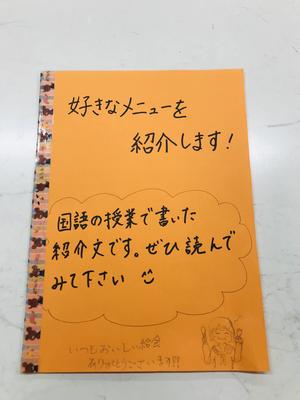 好きなメニューを
紹介します!
国語の授業で書いた
紹介文です。ぜひ読んで
みて下さい
いつもおいしい給食
ありがとうございます!!